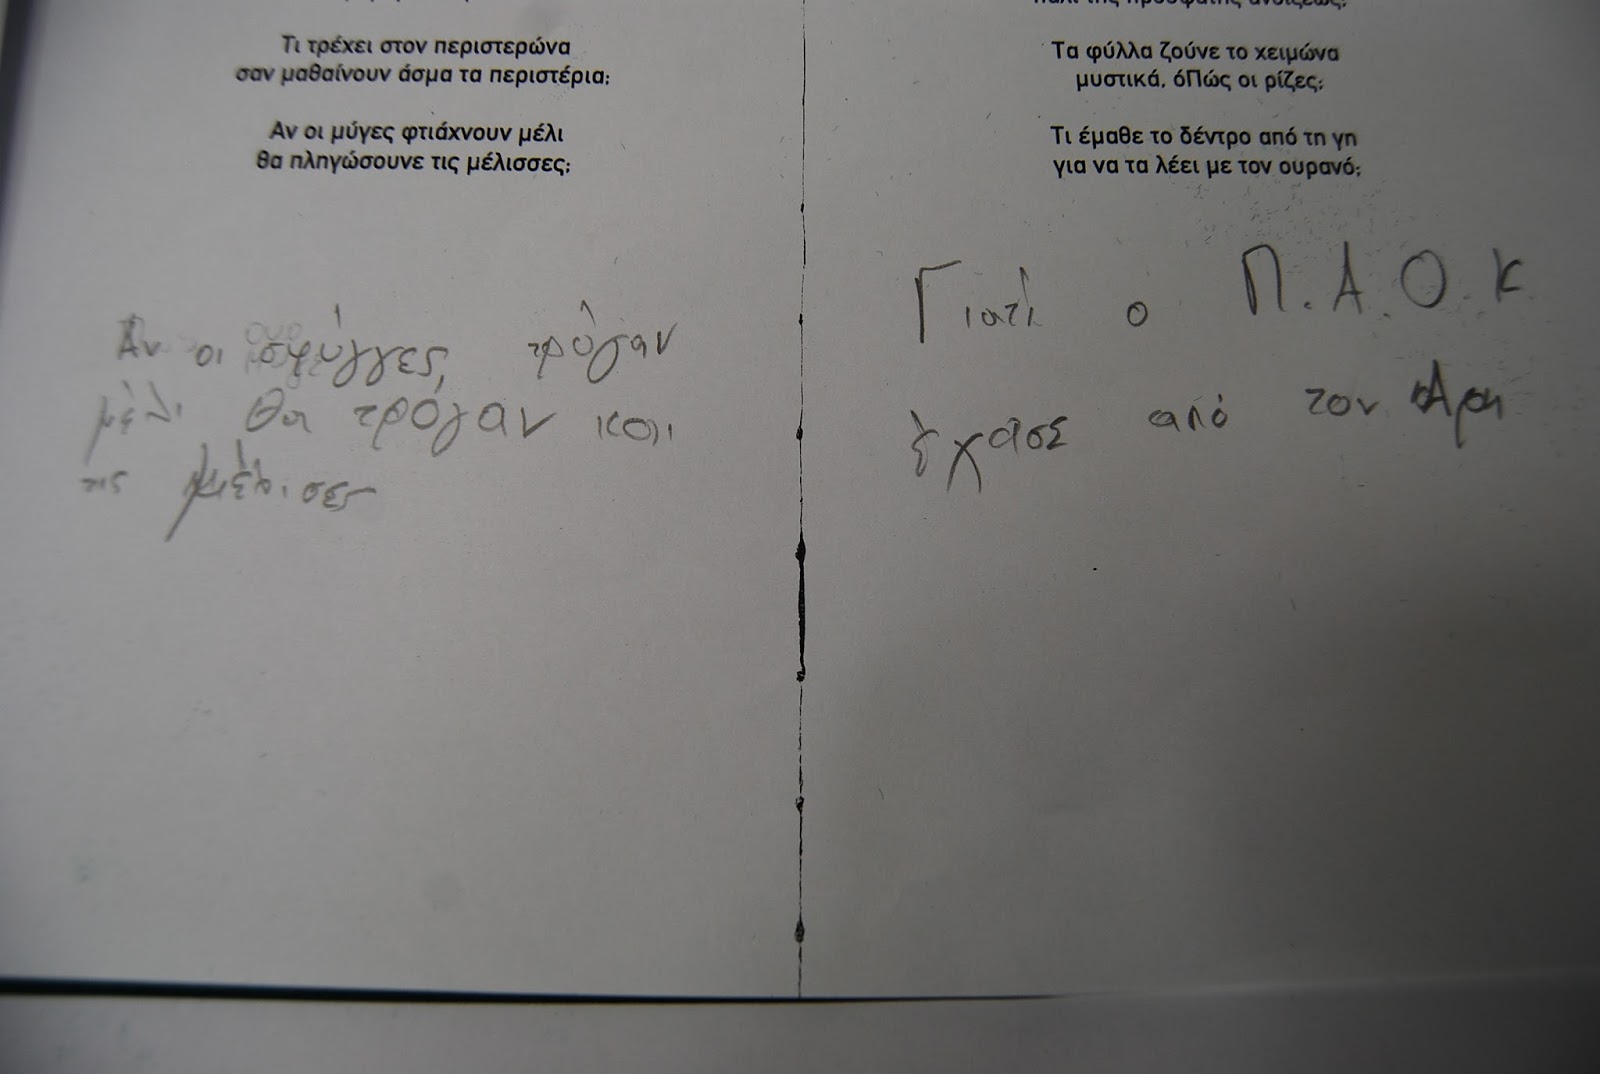 Τι τρέχει στον περιστερώνα
σαν μαθαίνουν άσμα τα περιστέρια;
Αν οι μύγες φτιάχνουν μέλι
θα πληγώσουνε τις μέλισσες;
Αν οι σφύγγες, τρόγαν
μέλι θα τρόγαν και
τις μέλισες
πάλι της πρόσφατης ανοίξεως;
Τα φύλλα ζούνε το χειμώνα
μυστικά, όΠώς οι ρίζες;
Τι έμαθε το δέντρο από τη γη
για να τα λέει με τον ουρανό;
Γιατί ο Π.Α.Ο.Κ
έχασε από τον Άρη